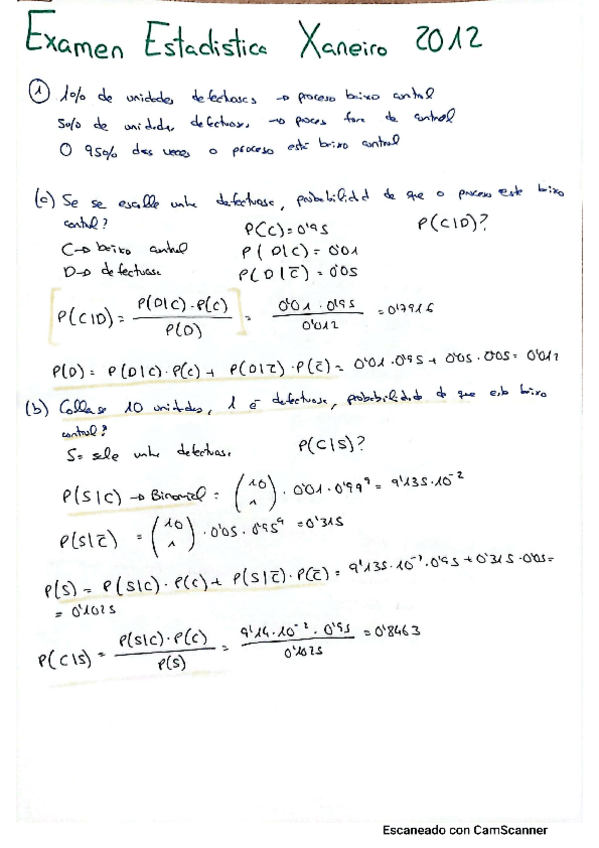 Examen Estadística Xaneiro 2012
① 1% de unidades defectuosas → proceso baixo control
5% de unidades defectuosas → proceso fora de control
O 95% das veces o proceso está baixo control
(a) Se se escolle unha defectuosa, probabilidad de que o proceso este baixo
control? P(C)=0'95 P(C|D)?
C→ baixo control P(D|C)=0'01
D→ defectuosa P(D|C̅)=0'05
P(C|D)= P(D|C)·P(C) / P(D) = 0'01·0'95 / 0'012 = 0'7916
P(D)= P(D|C)·P(C) + P(D|C̅)·P(C̅)= 0'01·0'95+ 0'05·0'05= 0'012
(b) Collase 10 unidades, 1 é defectuosa, probabilidad de que este baixo
control? P(C|S)?
S= sale unha defectuosa
P(S|C) → Binomial = (10 1)·0'01·0'99⁹= 9'135·10⁻²
P(S|C̅) = (10 1)·0'05·0'95⁹ =0'315
P(S) = P(S|C)·P(C)+ P(S|C̅)·P(C̅)= 9'135·10⁻²·0'95+0'315·0'05=
= 0'1025
P(C|S)= P(S|C)·P(C) / P(S) = 9'14·10⁻²·0'95 / 0'1025 =0'8463
Escaneado con CamScanner